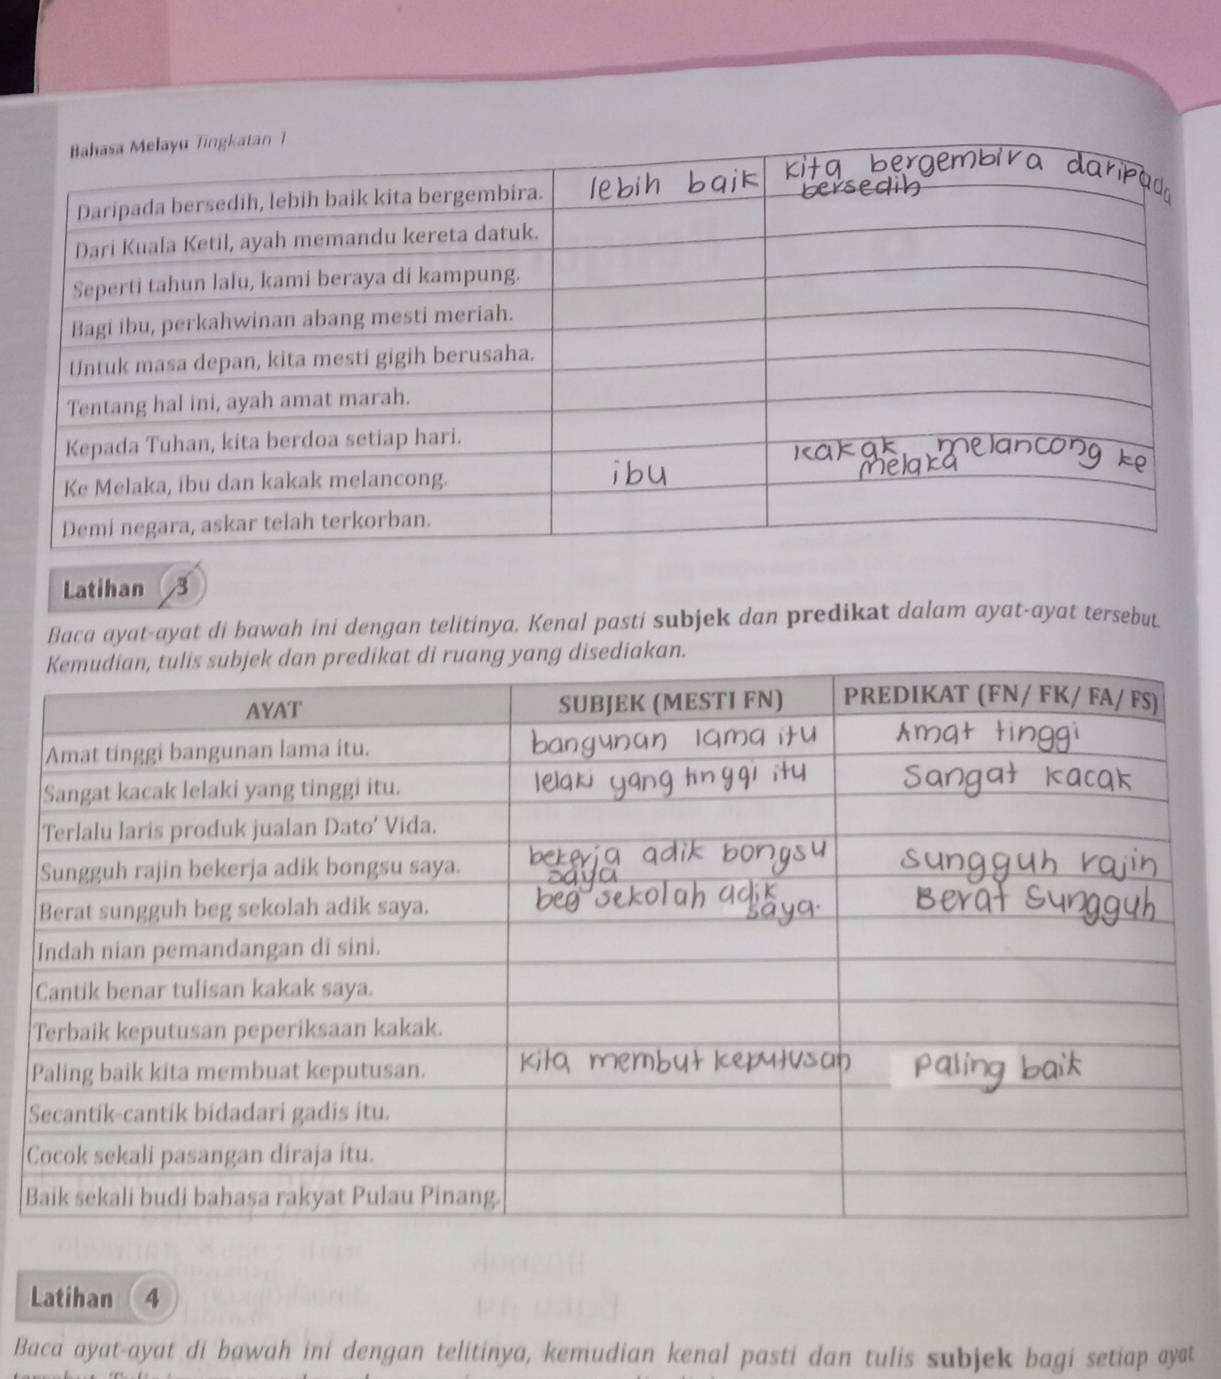 Bahasa Melayu Tingkatan 1
Daripada bersedih, lebih baik kita bergembira. lebih baik kita bergembira daripada
bersedih
Dari Kuala Ketil, ayah memandu kereta datuk.
Seperti tahun lalu, kami beraya di kampung.
Bagi ibu, perkahwinan abang mesti meriah.
Untuk masa depan, kita mesti gigih berusaha.
Tentang hal ini, ayah amat marah.
Kepada Tuhan, kita berdoa setiap hari.
Ke Melaka, ibu dan kakak melancong. ibu kakak melancong ke
melaka
Demi negara, askar telah terkorban.
Latihan 3
Baca ayat-ayat di bawah ini dengan telitinya. Kenal pasti subjek dan predikat dalam ayat-ayat tersebut.
Kemudian, tulis subjek dan predikat di ruang yang disediakan.
AYAT SUBJEK (MESTI FN) PREDIKAT (FN/ FK/ FA/ FS)
Amat tinggi bangunan lama itu. bangunan lama itu Amat tinggi
Sangat kacak lelaki yang tinggi itu. lelaki yang tinggi itu Sangat kacak
Terlalu laris produk jualan Dato' Vida.
Sungguh rajin bekerja adik bongsu saya. bekerja adik bongsu sungguh rajin
saya
Berat sungguh beg sekolah adik saya. beg sekolah adik Berat sungguh
saya.
Indah nian pemandangan di sini.
Cantik benar tulisan kakak saya.
Terbaik keputusan peperiksaan kakak.
Paling baik kita membuat keputusan. kita membut keputusan paling baik
Secantik-cantik bidadari gadis itu.
Cocok sekali pasangan diraja itu.
Baik sekali budi bahasa rakyat Pulau Pinang.
Latihan 4
Baca ayat-ayat di bawah ini dengan telitinya, kemudian kenal pasti dan tulis subjek bagi setiap ayat